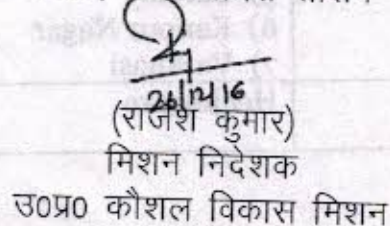 26/12/16
(राजेश कुमार)
मिशन निदेशक
उ0प्र0 कौशल विकास मिशन